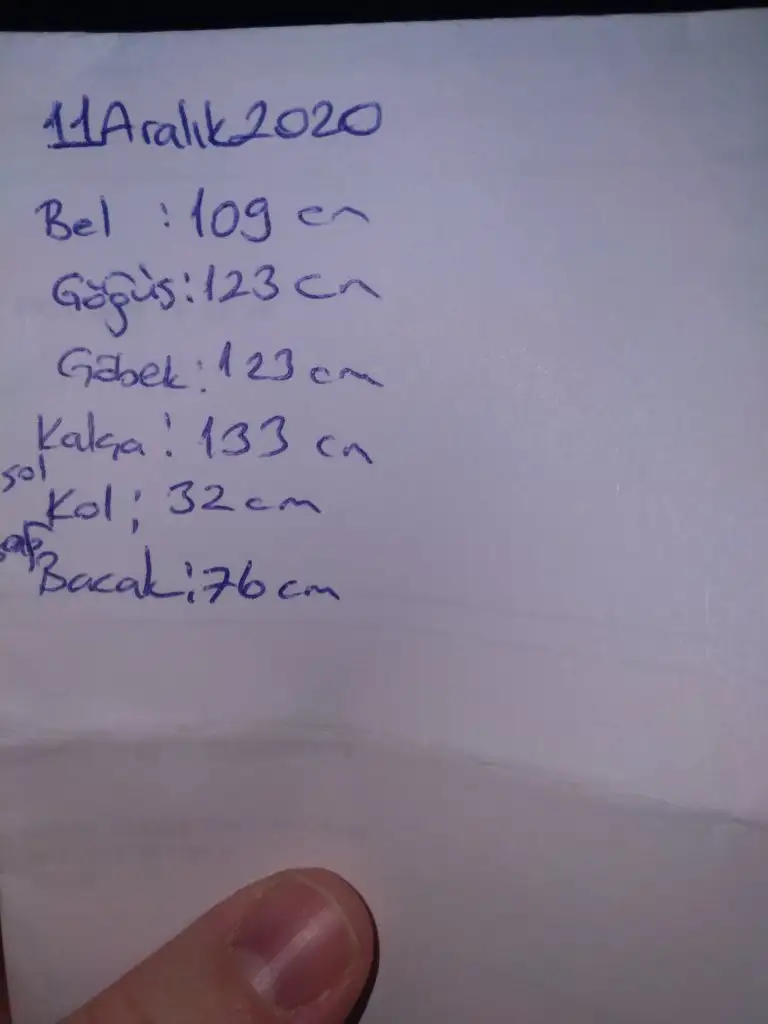 11 Aralık 2020
Bel : 109 cm
Göğüs : 123 cm
Göbek : 123 cm
Kalça : 133 cm
sol
Kol : 32 cm
sağ
Bacak : 76 cm